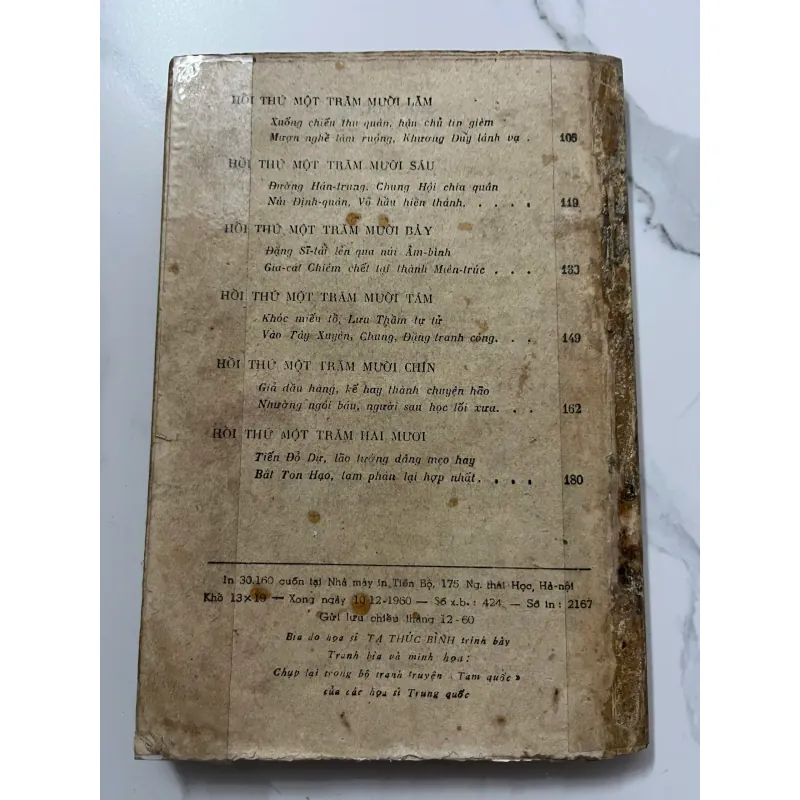 HỒI THỨ MỘT TRĂM MƯỜI LĂM
Xuống chiếu thu quân, hậu chủ tin gièm
Mượn nghề làm ruộng, Khương Duy lánh vạ . 105
HỒI THỨ MỘT TRĂM MƯỜI SÁU
Đường Hán-trung, Chung Hội chia quân
Núi Định-quân, Vũ hầu hiển thánh. . . . . 119
HỒI THỨ MỘT TRĂM MƯỜI BẢY
Đặng Sĩ-tải lẻn qua núi Âm-bình
Gia-cát Chiêm chết tại thành Miên-trúc . . . 133
HỒI THỨ MỘT TRĂM MƯỜI TÁM
Khóc miếu tổ, Lưu Thầm tự tử
Vào Tây Xuyên, Chung, Đặng tranh công. . . 149
HỒI THỨ MỘT TRĂM MƯỜI CHÍN
Giả đầu hàng, kế hay thành chuyện hão
Nhường ngôi báu, người sau học lối xưa. . . 162
HỒI THỨ MỘT TRĂM HAI MƯƠI
Tiến Đỗ Dự, lão tướng dâng mẹo hay
Bắt Tôn Hạo, tam phân lại hợp nhất. . . . . 180
In 30.160 cuốn tại Nhà máy in Tiến Bộ, 175 Ng. thái Học, Hà-nội
Khổ 13 × 19 — Xong ngày 10-12-1960 — Số x.b. : 424 — Số in : 2167
Gửi lưu chiểu tháng 12-60
Bìa do họa sĩ TẠ THÚC BÌNH trình bày
Tranh bìa và minh họa :
Chụp lại trong bộ tranh truyện « Tam quốc »
của các họa sĩ Trung quốc